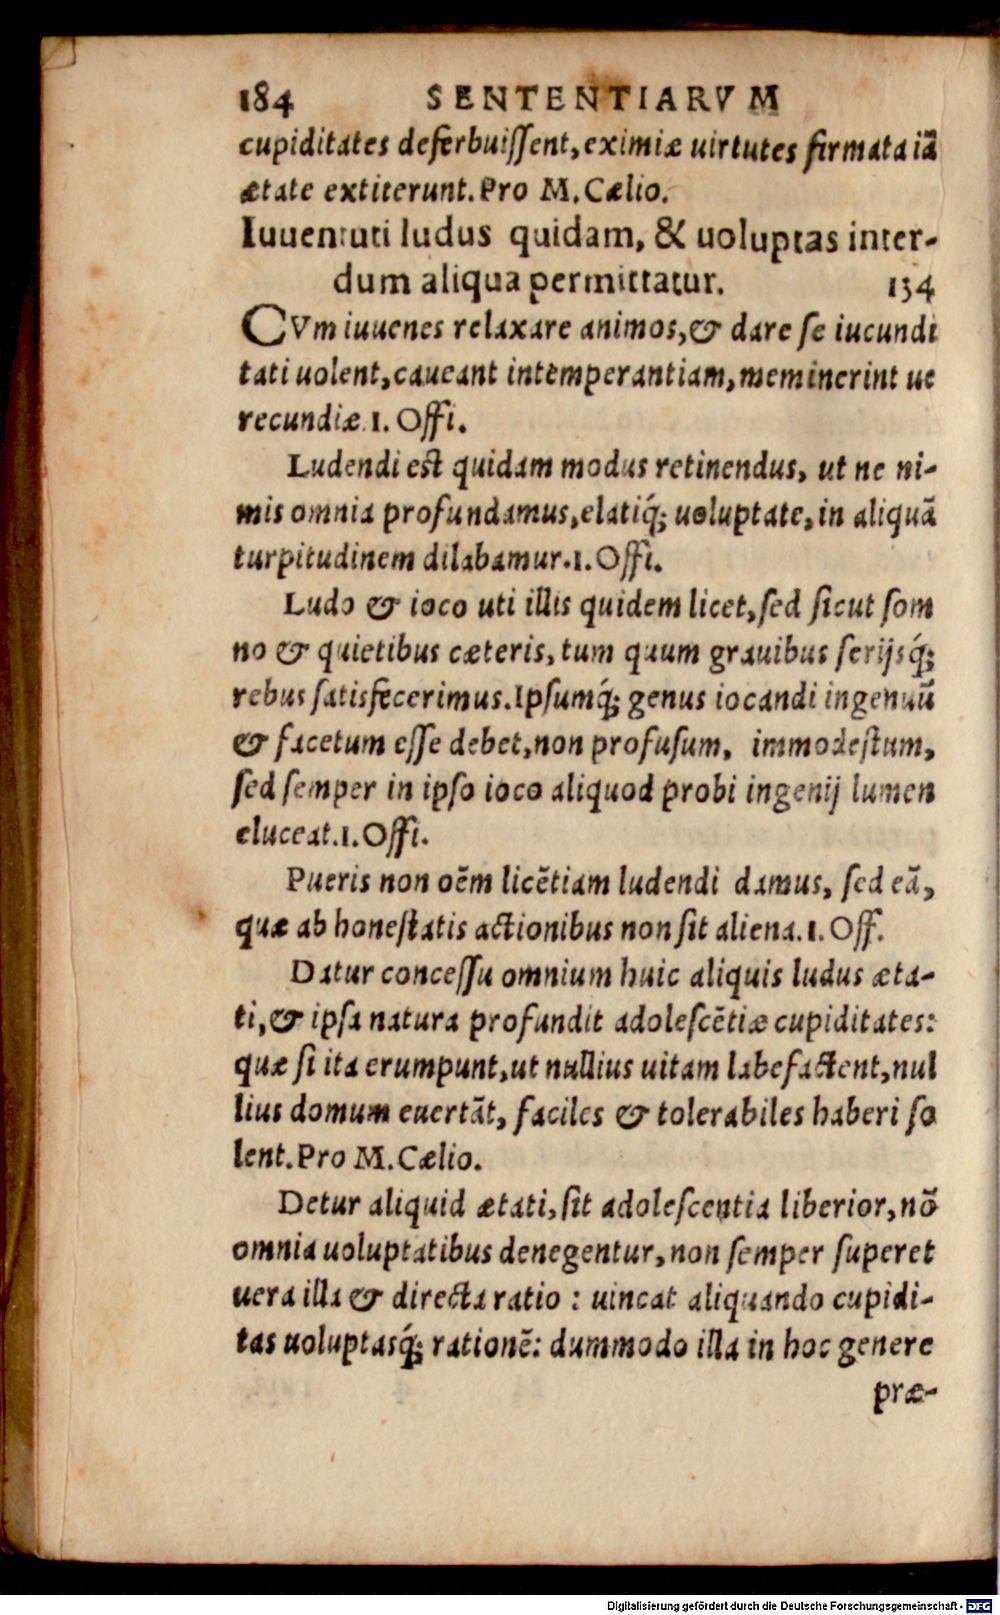 184 SENTENTIARVM
cupiditates deferbuiſſent, eximiæ uirtutes firmata iã
ætate extiterunt. Pro M. Cælio.
Iuuentuti ludus quidam, & uoluptas inter-
dum aliqua permittatur. 134
CVm iuuenes relaxare animos, & dare ſe iucundi
tati uolent, caueant intemperantiam, meminerint ue
recundiæ. 1. Offi.
Ludendi est quidam modus retinendus, ut ne ni-
mis omnia profundamus, elatiq́; uoluptate, in aliquã
turpitudinem dilabamur. 1. Offi.
Ludo & ioco uti illis quidem licet, ſed ſicut ſom
no & quietibus cæteris, tum quum grauibus ſerijsq́;
rebus ſatisfecerimus. Ipſumq́; genus iocandi ingenuũ
& facetum eſſe debet, non profuſum, immodeſtum,
ſed ſemper in ipſo ioco aliquod probi ingenij lumen
eluceat. 1. Offi.
Pueris non oẽm licẽtiam ludendi damus, ſed eã,
quæ ab honeſtatis actionibus non ſit aliena. 1. Off.
Datur conceſſu omnium huic aliquis ludus æta-
ti, & ipſa natura profundit adoleſcẽtiæ cupiditates:
quæ ſi ita erumpunt, ut nullius uitam labefactent, nul
lius domum euertãt, faciles & tolerabiles haberi ſo
lent. Pro M. Cælio.
Detur aliquid ætati, ſit adoleſcentia liberior, nõ
omnia uoluptatibus denegentur, non ſemper ſuperet
uera illa & directa ratio : uincat aliquando cupidi-
tas uoluptasq́; rationẽ: dummodo illa in hoc genere
præ-
Digitalisierung gefördert durch die Deutsche Forschungsgemeinschaft - DFG